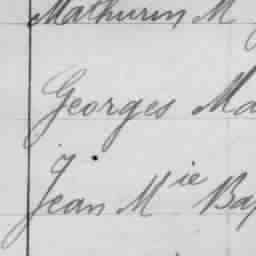 Mathurin M
Georges Ma
Jean Mie Bap